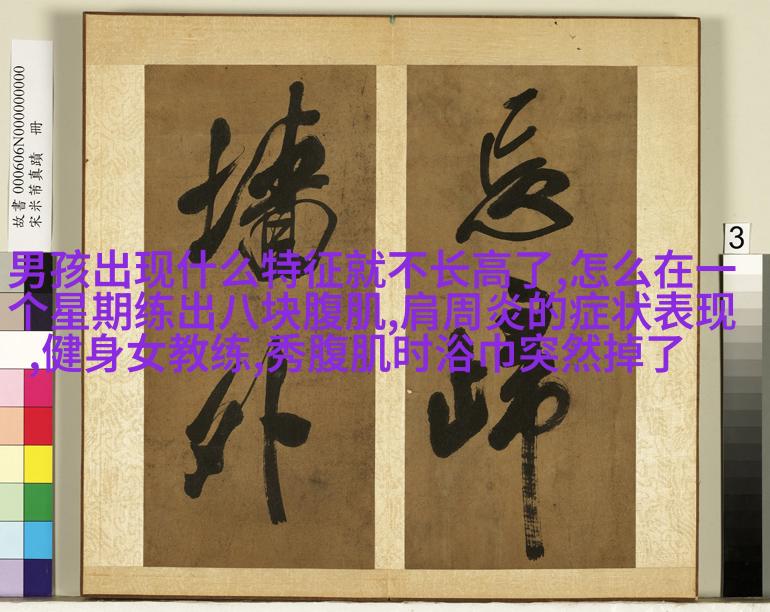 男孩出现什么特征就不长高了,怎么在一
个星期练出八块腹肌,肩周炎的症状表现
,健身女教练,秀腹肌时浴巾突然掉了
忘歸
墻外
故書 000606N000000000
宋米芾真蹟 冊
3